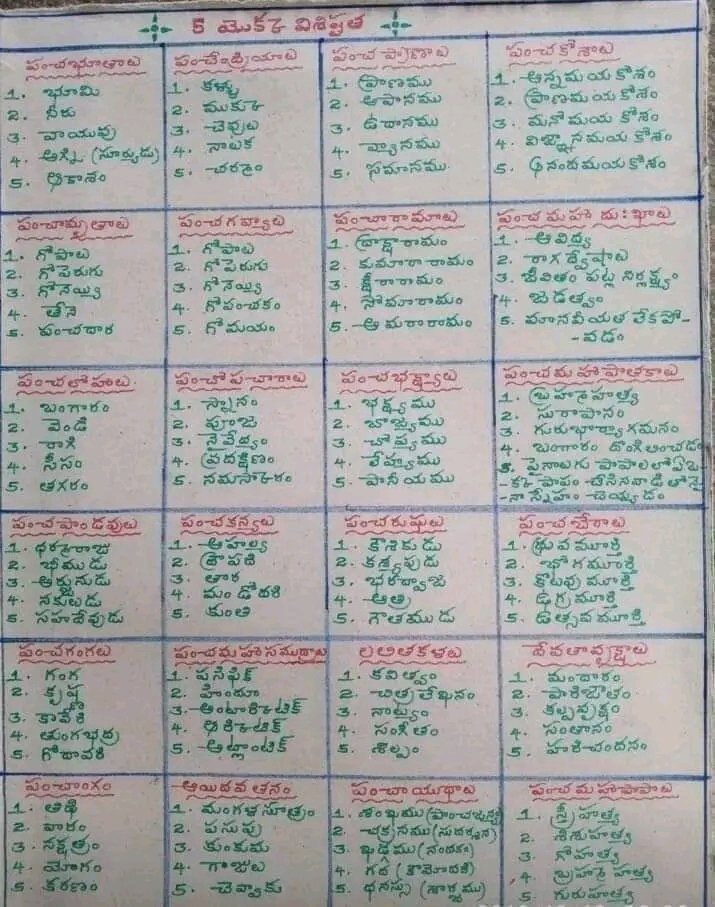 5 యొక్క విశిష్టత
పంచభూతాలు
1. భూమి
2. నీరు
3. వాయువు
4. అగ్ని (సూర్యుడు)
5. ఆకాశం
పంచేంద్రియాలు
1. కళ్ళు
2. ముక్కు
3. చెవులు
4. నాలుక
5. చర్మం
పంచ ప్రాణాలు
1. ప్రాణము
2. అపానము
3. ఉదానము
4. వ్యానము
5. సమానము.
పంచ కోశాలు
1. అన్నమయ కోశం
2. ప్రాణమయ కోశం
3. మనోమయ కోశం
4. విజ్ఞానమయ కోశం
5. ఆనందమయ కోశం
పంచామృతాలు
1. గోపాలు
2. గోపెరుగు
3. గోనెయ్యి
4. తేనే
5. పంచదార
పంచగవ్యాలు
1. గోపాలు
2. గోపెరుగు
3. గోనెయ్యి
4. గోపంచకం
5. గోమయం
పంచారామాలు
1. ద్రాక్షారామం
2. కుమారారామం
3. క్షీరారామం
4. సోమారామం
5. అమరారామం
పంచ మహా దు:ఖాలు
1. అవిద్య
2. రాగ ద్వేషాలు
3. జీవితం పట్ల నిర్లక్ష్యం
4. జడత్వం
5. మానవీయత లేకపో-
-వడం
పంచలోహాలు.
1. బంగారం
2. వెండి
3. రాగి
4. సీసం
5. తగరం
పంచోపచారాలు
1. స్నానం
2. పూజ
3. నైవేద్యం
4. ప్రదక్షిణం
5. నమస్కారం
పంచభక్ష్యాలు
1. భక్ష్యము
2. బాజ్యము
3. చోప్యము
4. లేహ్యము
5. పానీయము
పంచమహాపాతకాలు
1. బ్రహ్మహత్య
2. సురాపానం
3. గురుభార్యాగమనం
4. బంగారం దొంగిలించడం
5. పైనాలుగు పాపాలలో ఏఒ
-క్క పాపం చేసినవాడి తోనై
-నా స్నేహం చెయ్యడం
పంచ పాండవులు
1. ధర్మరాజు
2. భీముడు
3. అర్జునుడు
4. నకులుడు
5. సహదేవుడు
పంచకన్యలు
1. అహల్య
2. ద్రౌపది
3. తార
4. మండోదరి
5. కుంతి
పంచరుషులు
1. కౌశికుడు
2. కశ్యపుడు
3. భరద్వాజ
4. అత్రి
5. గౌతముడు
పంచ బేరాలు
1. ధ్రువ మూర్తి
2. భోగమూర్తి
3. కొలువు మూర్తి
4. ఉగ్రమూర్తి
5. ఉత్సవ మూర్తి
పంచగంగలు
1. గంగ
2. కృష్ణ
3. కావేరి
4. తుంగభద్ర
5. గోదావరి
పంచమహాసముద్రాలు
1. పసిఫిక్
2. హిందూ
3. అంటార్కిటిక్
4. ఆర్కిటిక్
5. అట్లాంటిక్
లలితకళలు
1. కవిత్వం
2. చిత్రలేఖనం
3. నాట్యం
4. సంగీతం
5. శిల్పం
దేవతావృక్షాలు
1. మందారం
2. పారిజాతం
3. కల్పవృక్షం
4. సంతానం
5. హరిచందనం
పంచాంగం
1. తిథి
2. వారం
3. నక్షత్రం
4. యోగం
5. కరణం
అయిదవతనం
1. మంగళసూత్రం
2. పసుపు
3. కుంకుమ
4. గాజులు
5. చెవ్వాకు
పంచాయుధాలు
1. శంఖము (పాంచజన్య)
2. చక్రనము (సుదర్శన)
3. ఖడ్గము (నందకం)
4. గద (కౌమోదకి)
5. ధనస్సు (శార్ఙ్గము)
పంచ మహాపాపాలు
1. స్త్రీ హత్య
2. శిశుహత్య
3. గోహత్య
4. బ్రహ్మహత్య
5. గురుహత్య